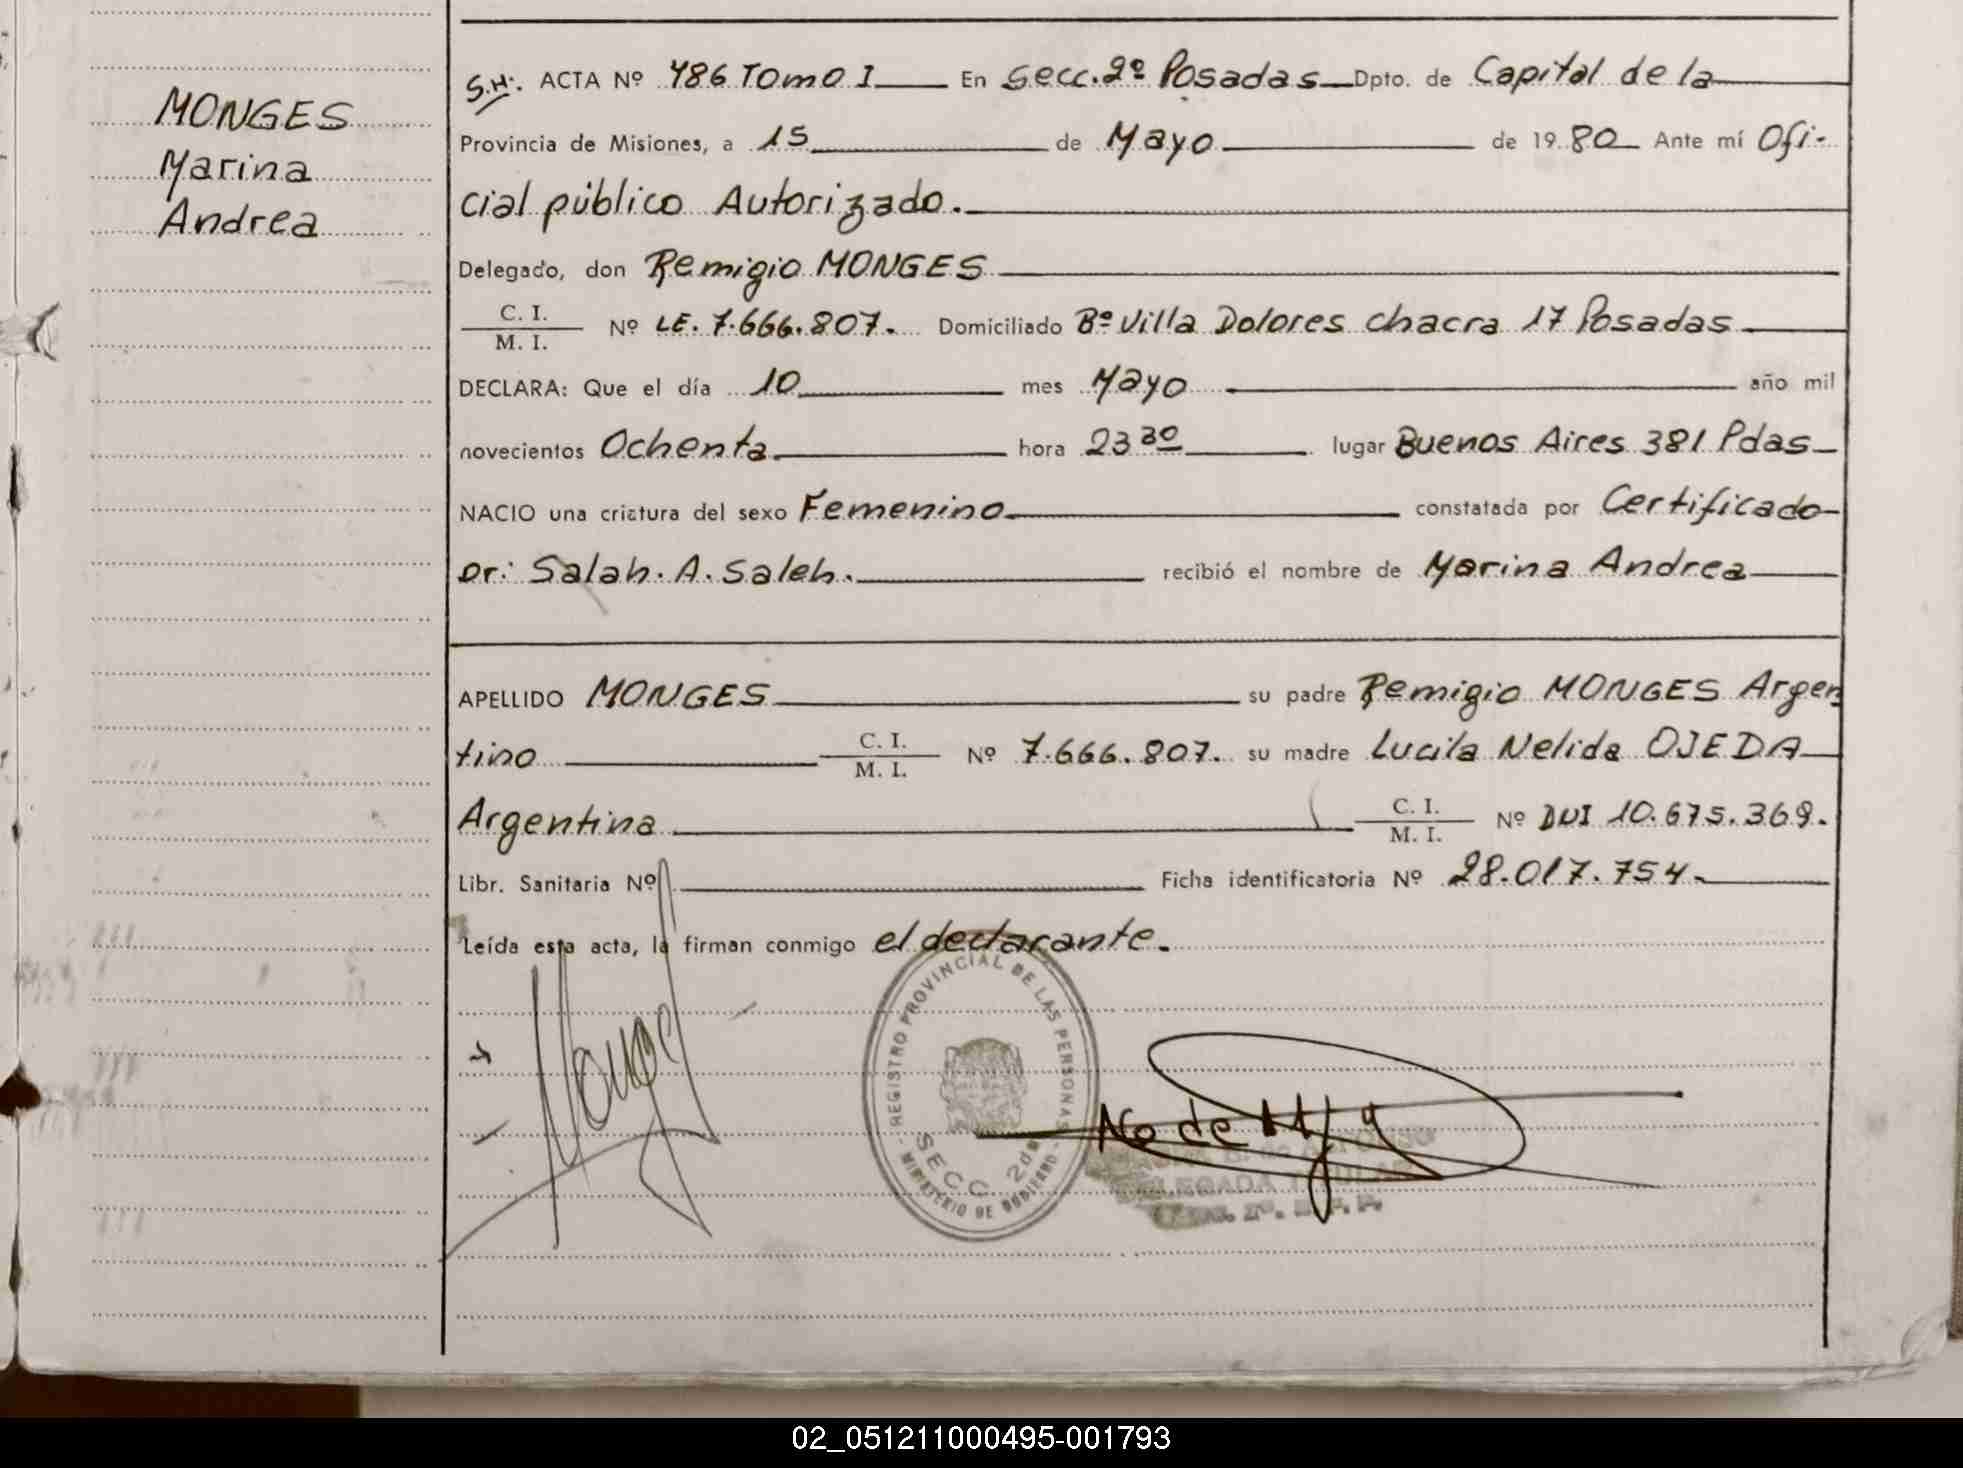 MONGES
Marina
Andrea
S.H. ACTA Nº 486 Tomo I En Secc. 2º Posadas Dpto. de Capital de la
Provincia de Misiones, a 15 de Mayo de 19 80 Ante mí Ofi-
cial público Autorizado.
Delegado, don Remigio MONGES
C. I.
M. I.
Nº LE. 7.666.807. Domiciliado Bº Villa Dolores chacra 17 Posadas
DECLARA: Que el día 10 mes Mayo año mil
novecientos Ochenta hora 23 30 lugar Buenos Aires 381 Pdas
NACIO una criatura del sexo Femenino constatada por Certificado
Dr: Salah. A. Saleh. recibió el nombre de Marina Andrea
APELLIDO MONGES su padre Remigio MONGES Argen
tino C. I. M. I. Nº 7.666.807. su madre Lucila Nelida OJEDA
Argentina C. I. M. I. Nº DNI 10.675.369.
Libr. Sanitaria Nº Ficha identificatoria Nº 28.017.754.
Leída esta acta, la firman conmigo el declarante.
REGISTRO PROVINCIAL DE LAS PERSONAS
SECC. 2da
MINISTERIO DE GOBIERNO
02_051211000495-001793